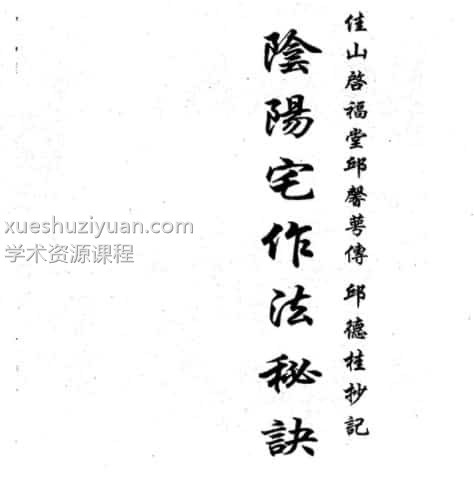 佳山啓福堂邱馨萼傳 邱德桂抄記
陰陽宅作法秘訣
xueshuziyuan.com
学术资源课程